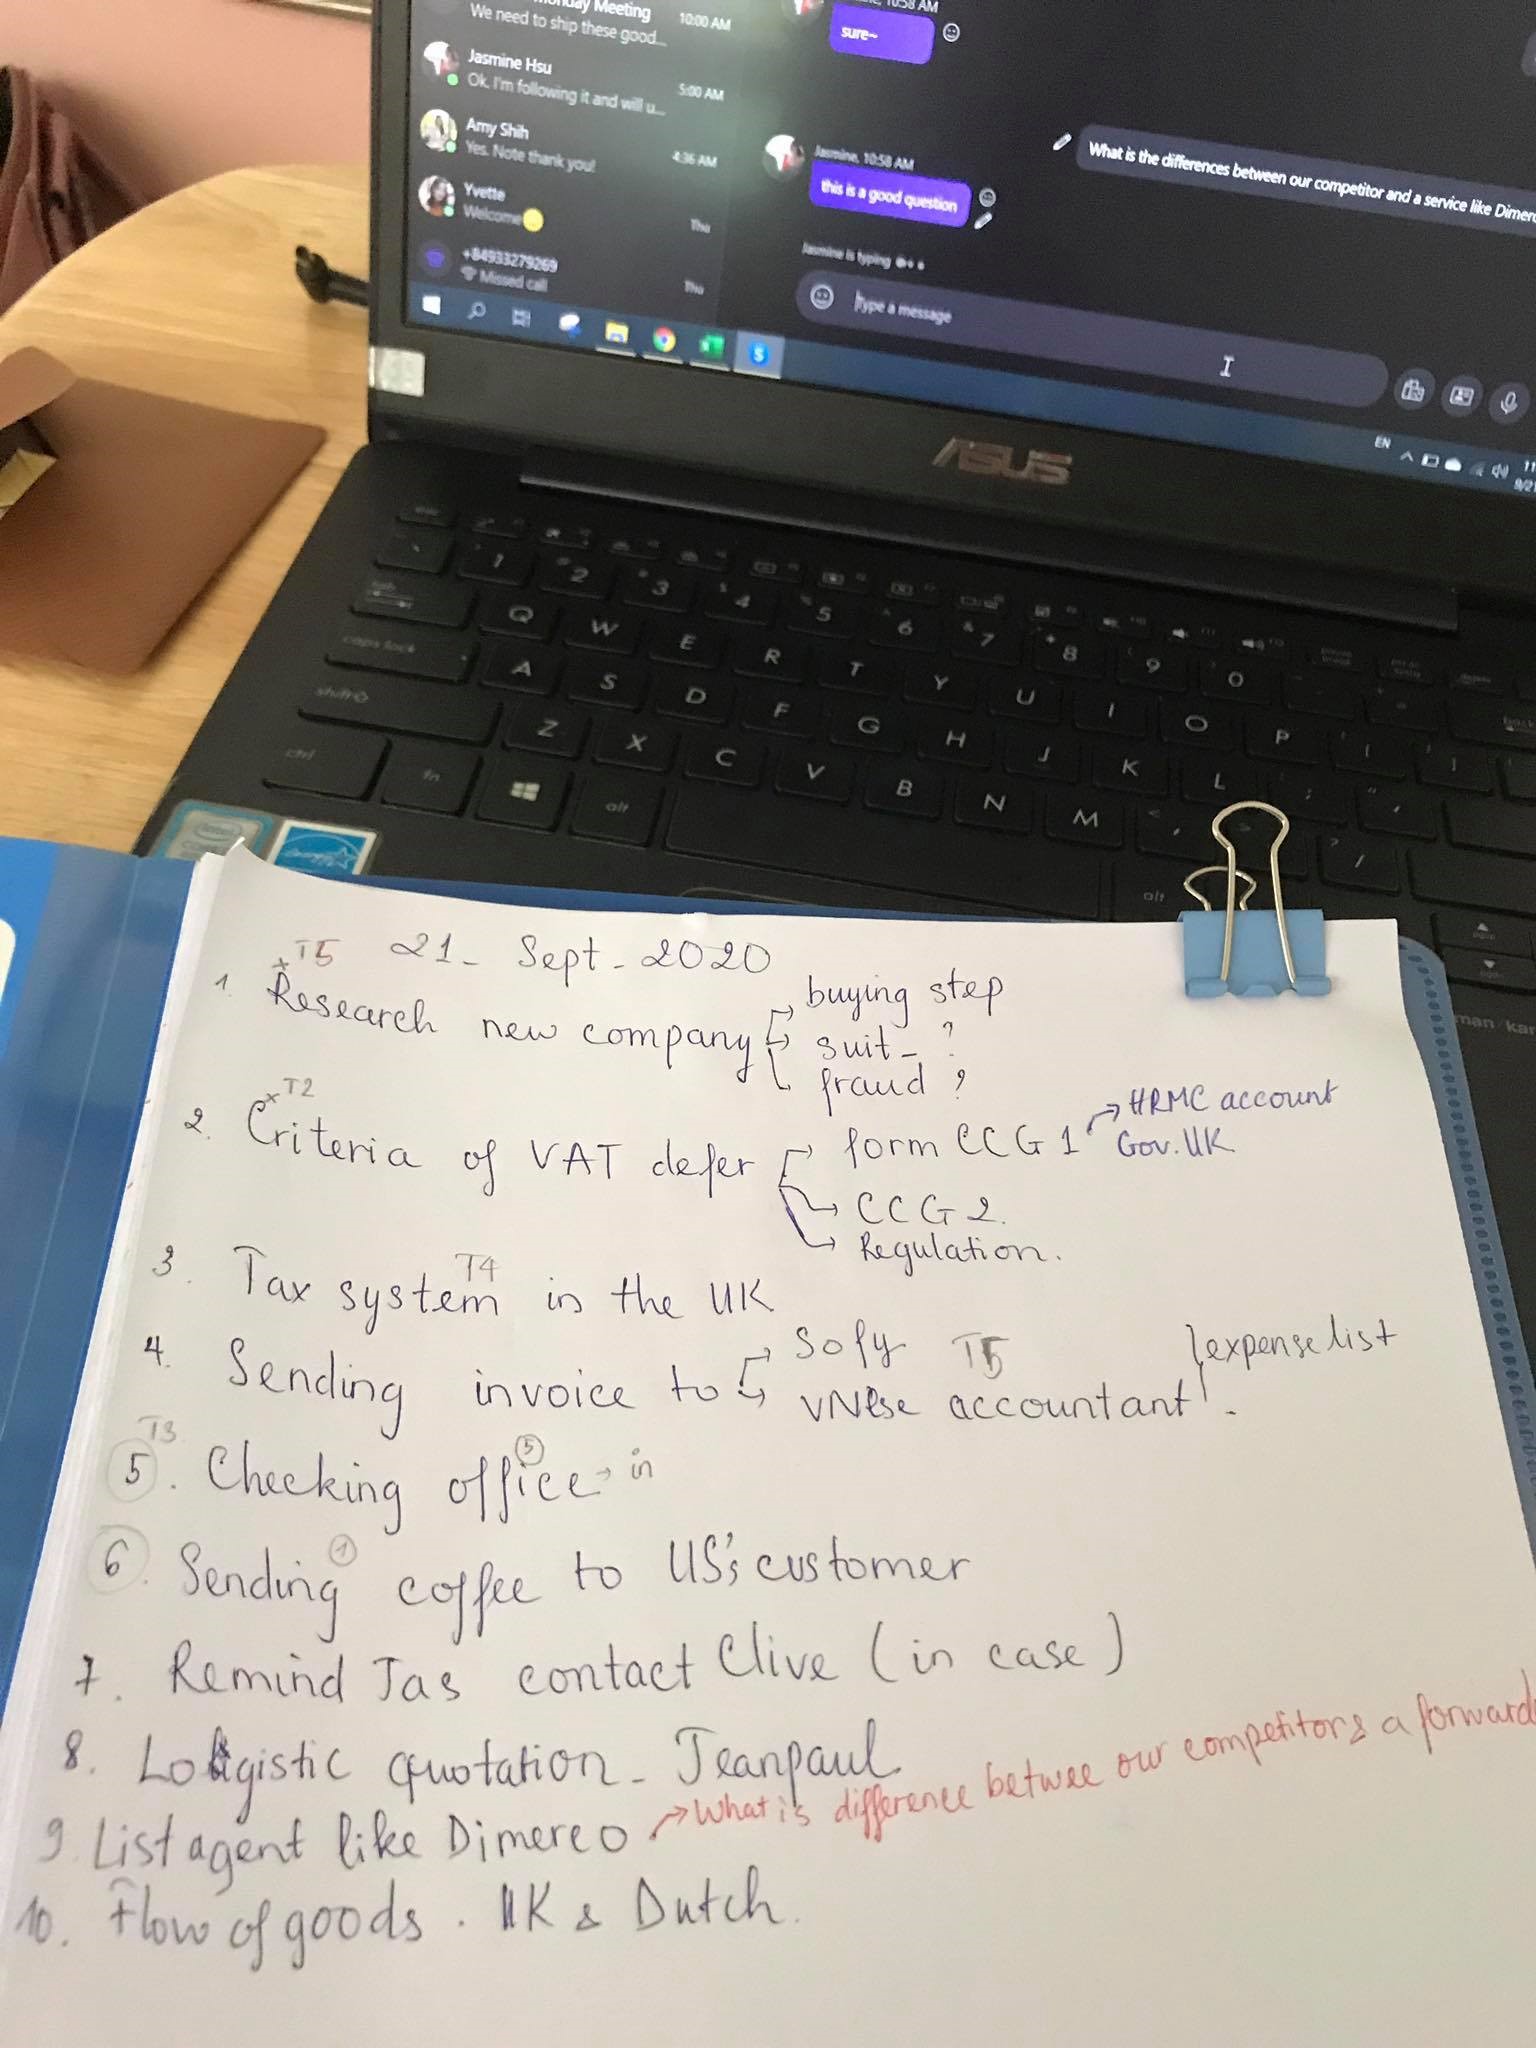 Monday Meeting
10:00 AM
We need to ship these good...
Jasmine Hsu
5:00 AM
Ok, I'm following it and will u...
Amy Shih
4:36 AM
Yes. Note thank you!
Yvette
Thu
Welcome
+84933279269
Thu
Missed call
10:58 AM
sure~
What is the differences between our competitor and a service like Dimer
Jasmine, 10:58 AM
this is a good question
Jasmine is typing
Type a message
EN
ASUS
1 2 3 4 5 6 7 8 9 0
Q W E R T Y U I O P
caps lock A S D F G H J K L
shift Z X C V B N M
ctrl fn alt alt
intel
man / kar
T5 21 - Sept - 2020
1. Research new company
buying step
suit - ?
fraud ?
T2
2. Criteria of VAT defer
form CCG1
HRMC account
Gov.UK
CCG2.
Regulation.
T4
3. Tax system in the UK
4. Sending invoice to
Sofy T5
VNese accountant.
expense list
T3
5. Checking office → in
5
6. Sending coffee to US's customer
1
7. Remind Jas contact Clive (in case)
8. Logistic quotation - Jeanpaul
9. List agent like Dimereo
What is difference betwee our competitors & a forward
10. Flow of goods. UK & Dutch.